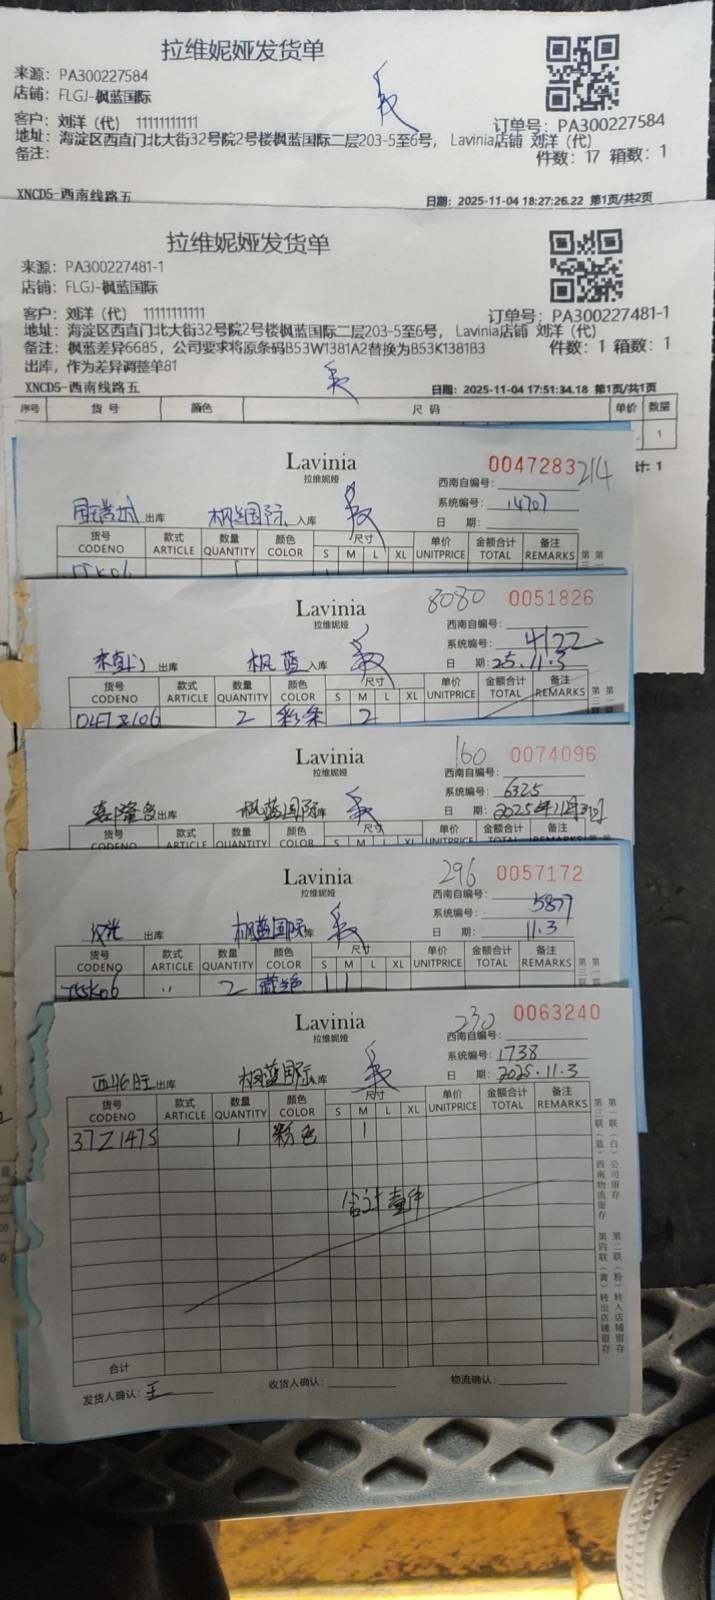 拉维妮娅发货单
来源：PA300227584
店铺：FLGJ-枫蓝国际
客户：刘洋（代） 11111111111
订单号：PA300227584
地址：海淀区西直门北大街32号院2号楼枫蓝国际二层203-5至6号， Lavinia店铺 刘洋（代）
备注：
件数：17 箱数：1
XNCD5-西南线路五
日期：2025-11-04 18:27:26.22 第1页/共2页
拉维妮娅发货单
来源：PA300227481-1
店铺：FLGJ-枫蓝国际
客户：刘洋（代） 11111111111
订单号：PA300227481-1
地址：海淀区西直门北大街32号院2号楼枫蓝国际二层203-5至6号， Lavinia店铺 刘洋（代）
备注：枫蓝差异6685，公司要求将原条码B53W1381A2替换为B53K1381B3
件数：1 箱数：1
出库，作为差异调整单81
XNCD5-西南线路五
日期：2025-11-04 17:51:34.18 第1页/共1页
序号 货号 颜色 尺码 单价 数量
1
计：1
Lavinia
拉维妮娅
0047283 214
西南自编号：
系统编号：14707
日 期：
出库 枫蓝国际 入库
货号 款式 数量 颜色 尺寸 单价 金额合计 备注
CODENO ARTICLE QUANTITY COLOR S M L XL UNITPRICE TOTAL REMARKS
Lavinia
拉维妮娅
8080 0051826
西南自编号：
系统编号：4122
日 期：25.11.3
出库 枫蓝 入库
货号 款式 数量 颜色 尺寸 单价 金额合计 备注
CODENO ARTICLE QUANTITY COLOR S M L XL UNITPRICE TOTAL REMARKS
2 彩条 2
Lavinia
拉维妮娅
160 0074096
西南自编号：
系统编号：6325
日 期：2025年11月3日
嘉隆多 出库 枫蓝国际 库
货号 款式 数量 颜色 尺寸 单价 金额合计 备注
Lavinia
拉维妮娅
296 0057172
西南自编号：
系统编号：5877
日 期：11.3
出库 枫蓝国际 库
货号 款式 数量 颜色 尺寸 单价 金额合计 备注
CODENO ARTICLE QUANTITY COLOR S M L XL UNITPRICE TOTAL REMARKS
755K06 〃 2 1 1
Lavinia
拉维妮娅
230 0063240
西南自编号：
系统编号：1738
日 期：2025.11.3
出库 枫蓝国际 入库
货号 款式 数量 颜色 尺寸 单价 金额合计 备注
CODENO ARTICLE QUANTITY COLOR S M L XL UNITPRICE TOTAL REMARKS
37Z1475 1 粉色 1
合计壹件
合计
发货人确认：王 收货人确认： 物流确认：
第一联（白）公司留存
第三联（蓝）西南物流留存
第二联（粉）转入店铺留存
第四联（黄）转出店铺留存